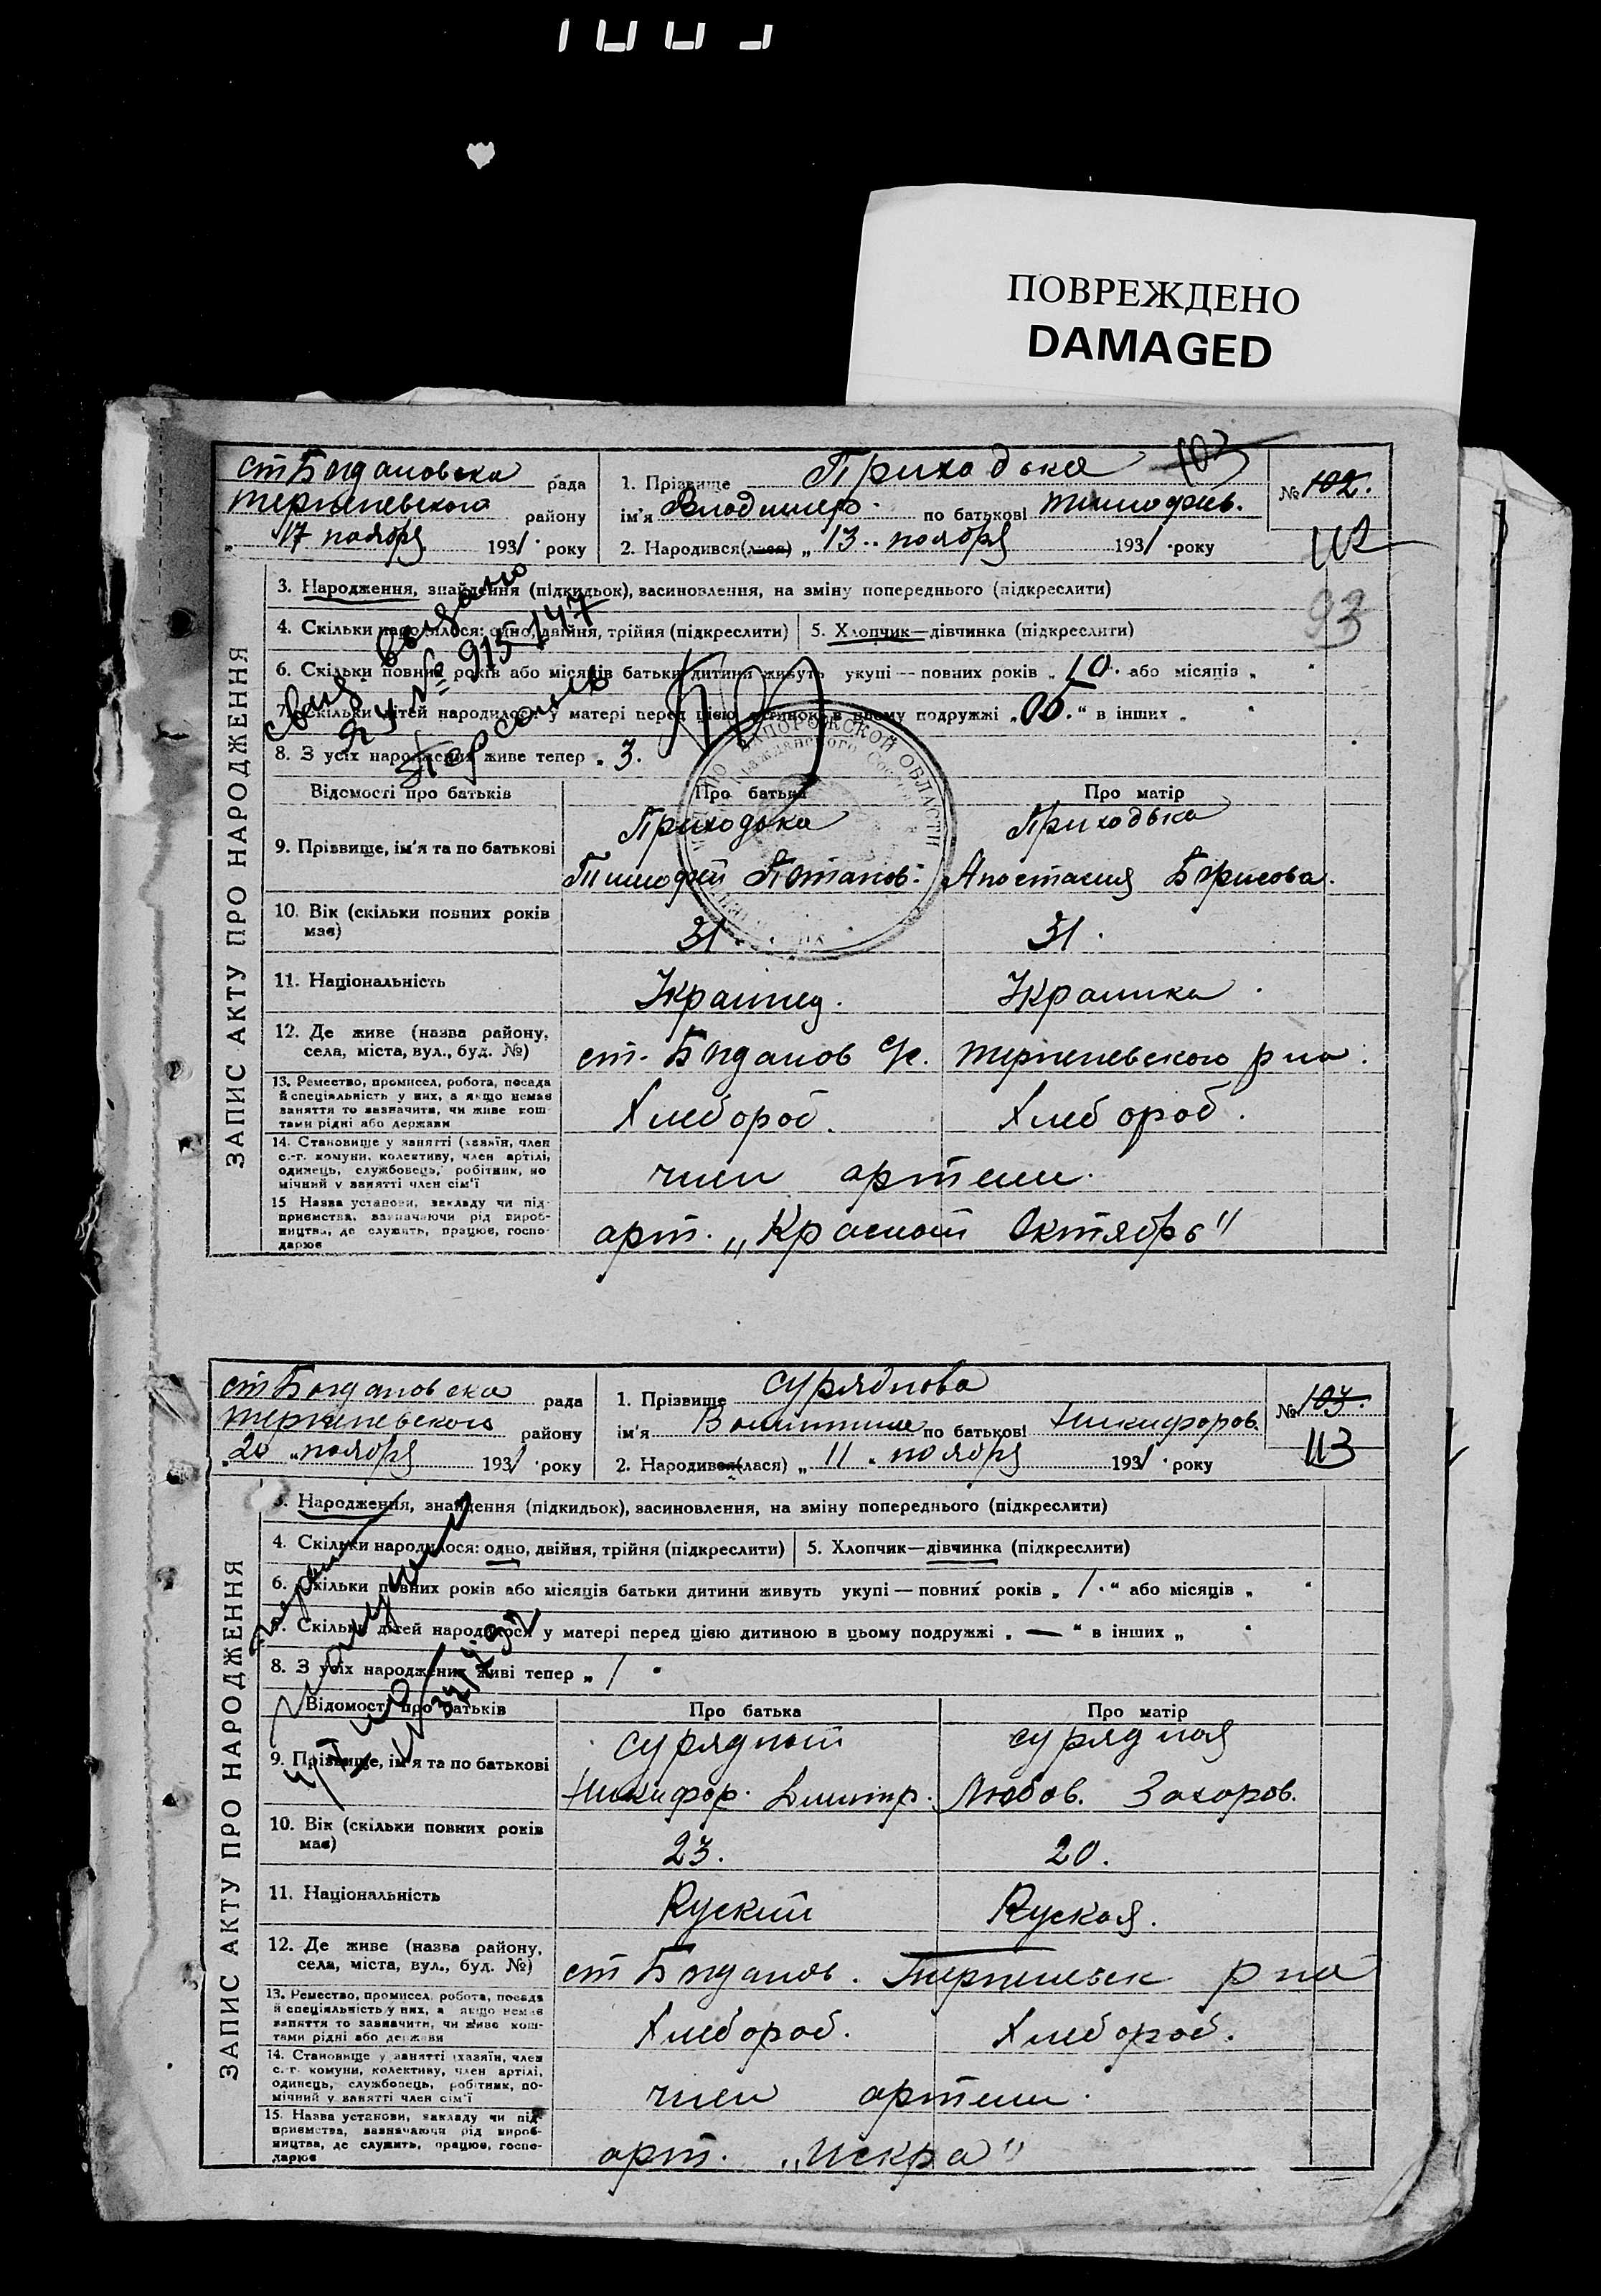 ПОВРЕЖДЕНО
DAMAGED
ст Богдановска рада
терпеневского району
17 ноября 1931 року
1. Прізвище Приходька 103
ім'я Владимер по батькові тимофеев.
2. Народився(лася) „13„ ноября 1931 року
№ 102.
112
93
3. Народження, знайдення (підкидьок), засиновлення, на зміну попереднього (підкреслити)
4. Скільки народилося: одно, двійня, трійня (підкреслити) 5. Хлопчик—дівчинка (підкреслити)
6. Скільки повних років або місяців батьки дитини живуть укупі — повних років „10.„ або місяців „ “
7. Скільки дітей народилося у матері перед цією дитиною в цьому подружжі „05.“ в інших „ “
8. З усіх народжених живе тепер „3.
свид. выдано
ЯУ № 915147
Відомості про батьків Про батька Про матір
9. Прізвище, ім'я та по батькові Приходька Приходька
Тимофей Потапов. Анастасия Борисова.
10. Вік (скільки повних років має) 31. 31.
11. Національність Украинец. Украинка.
12. Де живе (назва району, села, міста, вул., буд. №) ст. Богданов с/с. терпеневского р на.
13. Ремество, промисел, робота, посада й спеціяльність у них, а якщо немає заняття то зазначити, чи живе коштами рідні або держави Хлебороб. Хлебороб.
14. Становище у занятті (хазяїн, член с.-г. комуни, колективу, член артілі, одинець, службовець, робітник, помічний у занятті член сім'ї член артели.
15 Назва установи, закладу чи підприємства, зазначаючи рід виробництва, де служить, працює, господарює арт. „Красной Октябрь"
ЗАПИС АКТУ ПРО НАРОДЖЕННЯ
ЗАПОРОЖСКОЙ ОБЛАСТИ
ст Богдановска рада
терпеневского району
„20„ ноября 1931 року
1. Прізвище Суряднова
ім'я Валинтина по батькові Никифоров.
2. Народився(лася) „11„ ноября 1931 року
№ 103.
113
3. Народження, знайдення (підкидьок), засиновлення, на зміну попереднього (підкреслити)
4. Скільки народилося: одно, двійня, трійня (підкреслити) 5. Хлопчик—дівчинка (підкреслити)
6. Скільки повних років або місяців батьки дитини живуть укупі — повних років „1.“ або місяців „ “
7. Скільки дітей народилося у матері перед цією дитиною в цьому подружжі „—“ в інших „ “
8. З усіх народжених живі тепер „1
Відомості про батьків Про батька Про матір
9. Прізвище, ім'я та по батькові Сурядной Сурядная
Никифор. Дмитр. Любов. Захаров.
10. Вік (скільки повних років має) 23. 20.
11. Національність Руский Руская.
12. Де живе (назва району, села, міста, вул., буд. №) ст Богданов. Терпеневск р на
13. Ремество, промисел, робота, посада й спеціяльність у них, а якщо немає заняття то зазначити, чи живе коштами рідні або держави Хлебороб. Хлебороб.
14. Становище у занятті (хазяїн, член с.-г. комуни, колективу, член артілі, одинець, службовець, робітник, помічний у занятті член сім'ї член артели.
15. Назва установи, закладу чи підприємства, зазначаючи рід виробництва, де служить, працює, господарює арт. „Искра"
ЗАПИС АКТУ ПРО НАРОДЖЕННЯ